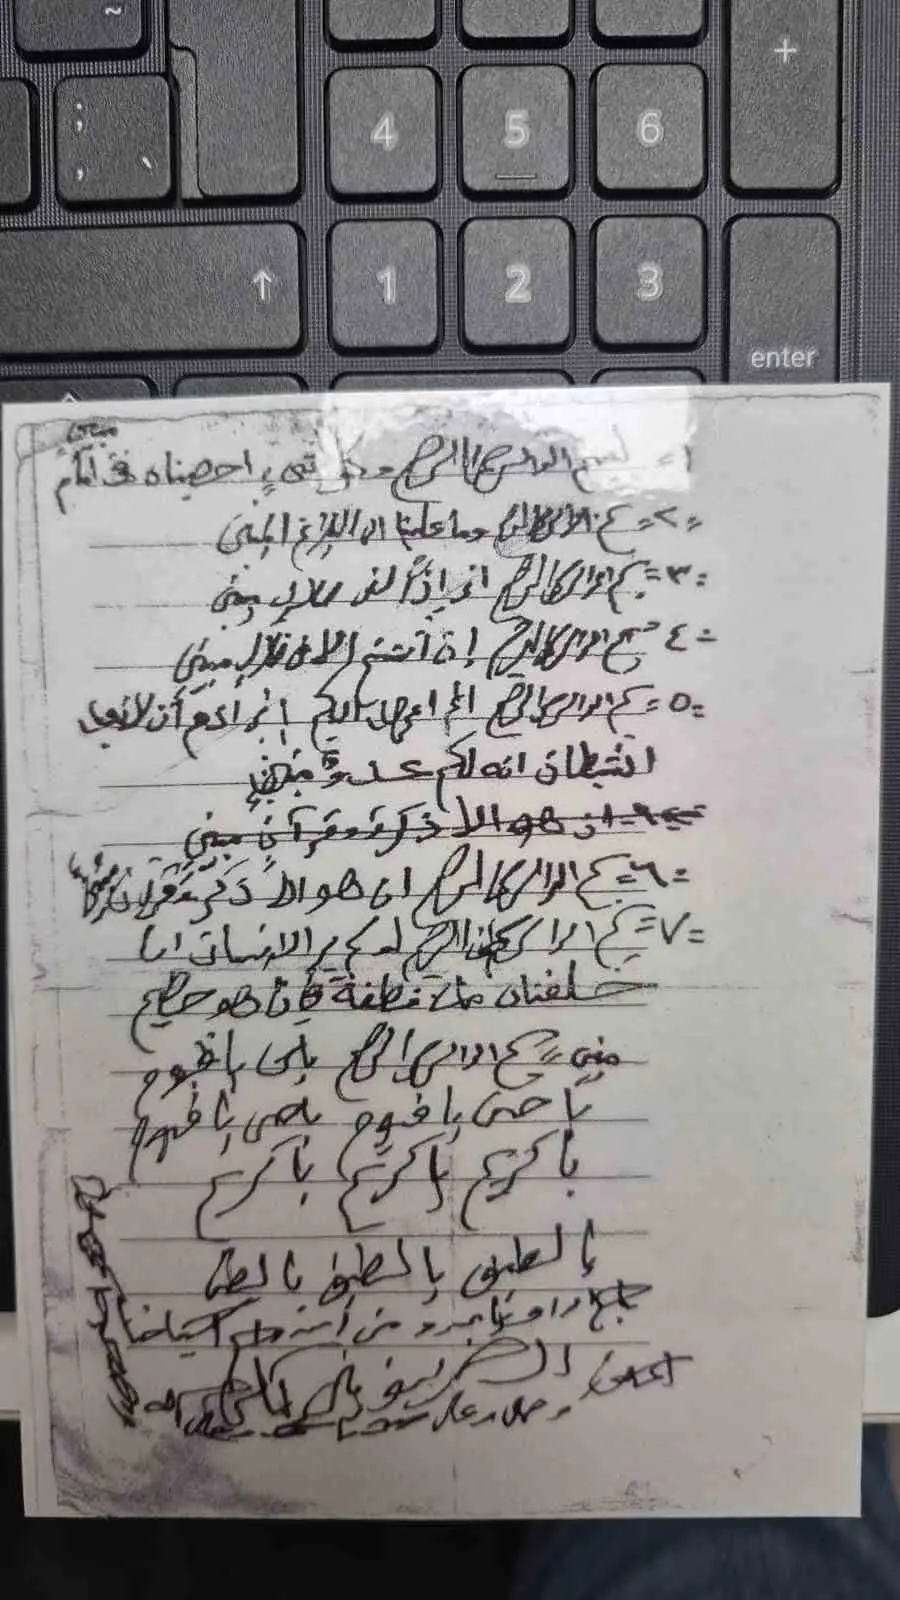 ~
+
; ,
4 5 6
↑ 1 2 3
enter
مبين
١= بسم الله الرحمن الرحيم وكل شيء احصيناه في امام
=٢= بسم الله الرحمن الرحيم وما علينا الا البلاغ المبين
=٣= بسم الله الرحمن الرحيم اني اذاً لفي ضلال مبين
=٤ بسم الله الرحمن الرحيم إن أنتم الا في ضلال مبين
=٥= بسم الله الرحمن الرحيم الم اعهد اليكم آدم أن لا
الشيطان انه لكم عدو مبين
ان هو الا ذكر و قرآن مبين
=٦= بسم الله الرحمن الرحيم ان هو الا ذكر وقرآن مبين
=٧= بسم الله الرحمن الرحيم الإنسان انا
خلقناه من نطفة فإذا هو خصيم
مبين = بسم الله الرحمن الرحيم يا قيوم
يا حي يا قيوم يا حي يا قيوم
يا كريم يا كريم يا كريم
يا لطيف يا لطيف يا لطيف
من